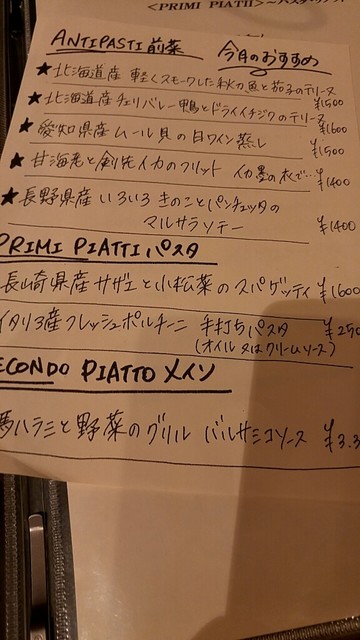 <PRIMI PIATTI>
ANTIPASTI 前菜 今月のおすすめ
★北海道産 軽くスモークした秋の魚と茄子のテリーヌ ¥1500
★北海道産チェリバレー鴨とドライイチジクのテリーヌ ¥1600
★愛知県産ムール貝の白ワイン蒸し ¥1500
★甘海老と剣先イカのフリット イカ墨の衣で… ¥1400
★長野県産いろいろきのことパンチェッタの
マルサラソテー ¥1400
PRIMI PIATTI パスタ
長崎県産サザエと小松菜のスパゲッティ ¥1600
イタリア産フレッシュポルチーニ 手打ちパスタ ¥250
(オイル又はクリームソース)
ECONDO PIATTO メイン
馬ハラミと野菜のグリル バルサミコソース ¥3.3